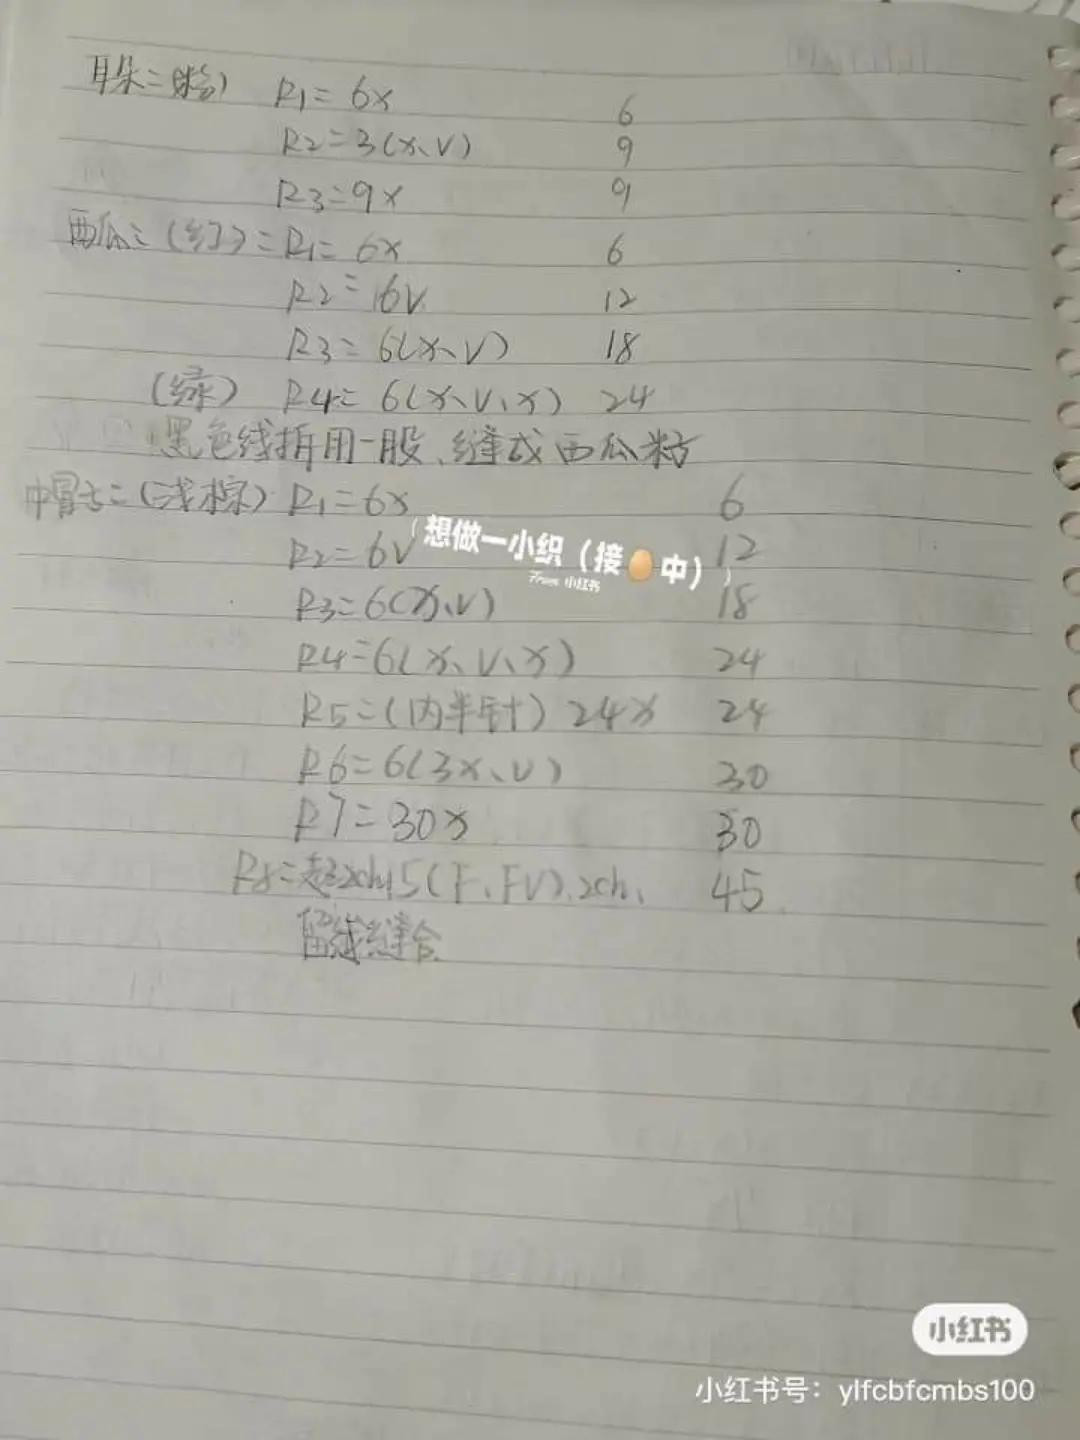 耳朵：(粉) R1=6x 6
R2=3(x、v) 9
R3=9x 9
西瓜：(红)：R1=6x 6
R2=6v 12
R3=6(x、v) 18
(绿) R4=6(x、v、x) 24
黑色线拆用一股、缝成西瓜籽
(浅棕) R1=6x 6
R2=6v 12
(想做一小织（接🥚中）)
From 小红书
R3=6(x、v) 18
R4=6(x、v、x) 24
R5=(内半针) 24x 24
R6=6(3x、v) 30
R7=30x 30
R8=起2ch15(F、FV).2ch、 45
留线缝合.
小红书
小红书号：ylfcbfcmbs100